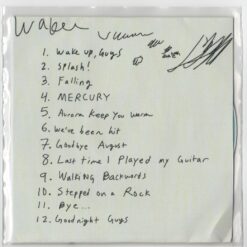 Waber
1. Wake up, Guys
2. Splash!
3. Falling
4. MERCURY
5. Aurora Keep You Warm
6. We've been hit
7. Goodbye August
8. Last time I Played my Guitar
9. Walking Backwards
10. Stepped on a Rock
11. Bye...
12. Goodnight Guys